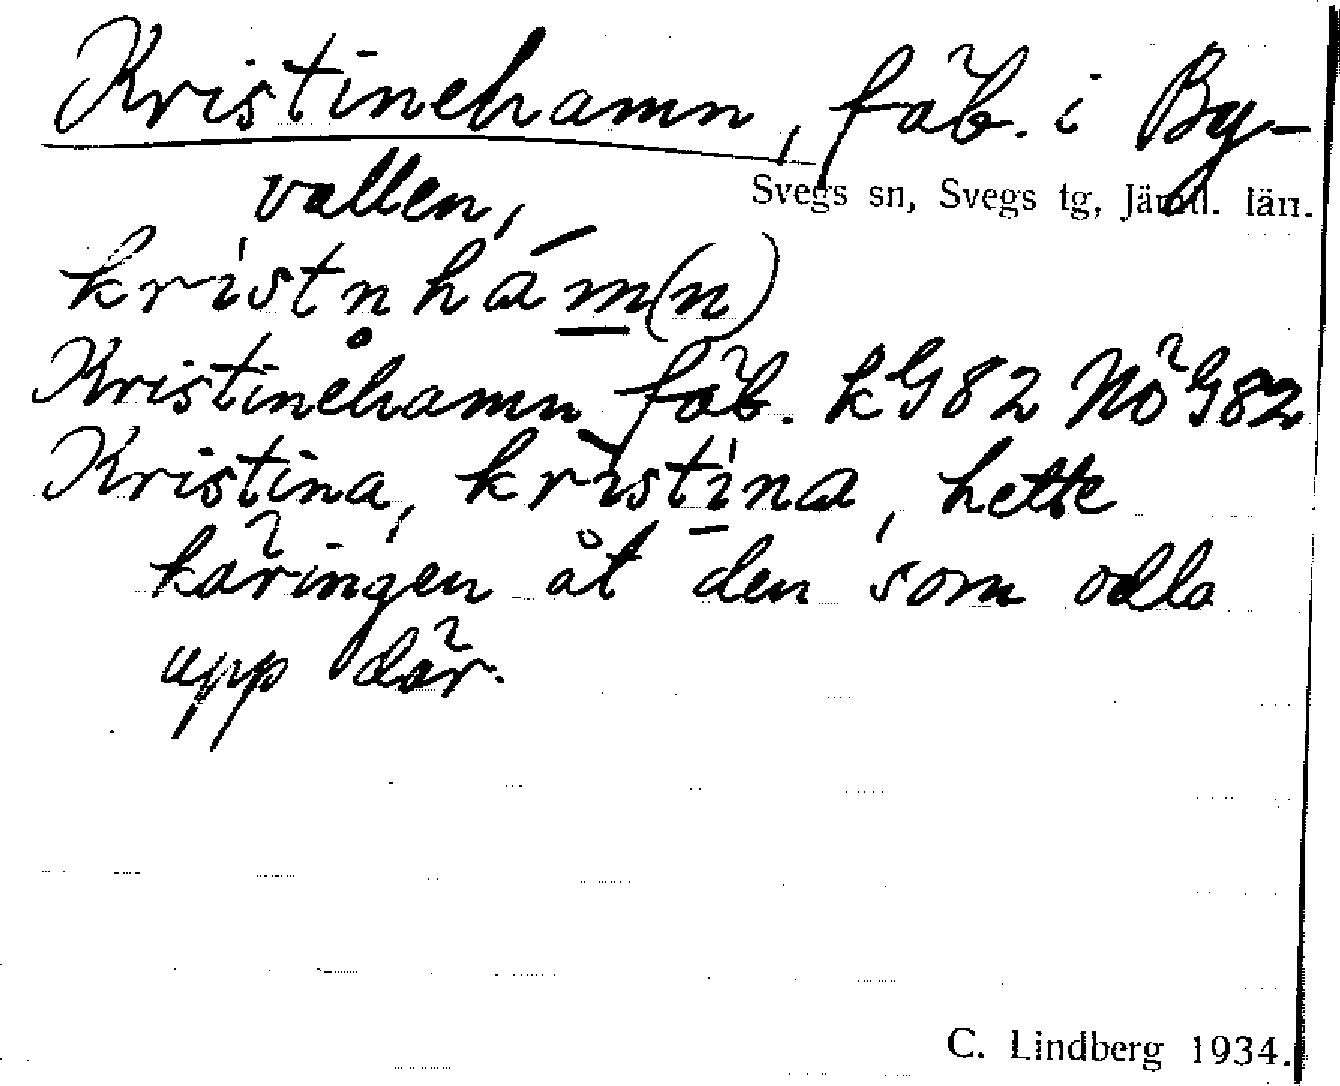 Kristinehamn, fäb. i By-
vallen,
Svegs sn, Svegs tg, Jämtl. län.
kristn̥hám(n)
Kristinehamn fäb. kG82 NöG82
Kristina, kristina, hette
käringen åt den som odla
upp där.
C. Lindberg 1934.